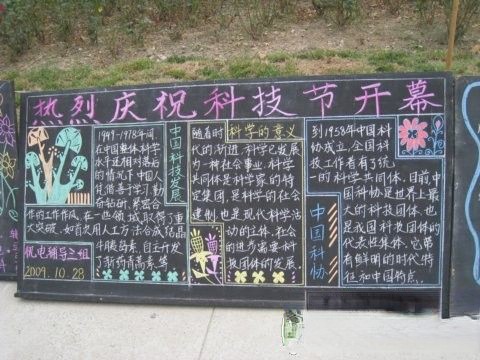 热烈庆祝科技节开幕
1949-1978年间,
在中国整体科学
水平还相对落后
的情况下中国人
凭借善于学习,勤
奋钻研,紧密合
作的工作作风,在一些领域取得了重
大突破,如首次用人工方法合成了结晶
牛胰岛素,自主研发
了新药青蒿素,等
中国科技发展
机电辅导三组
2009.10.28
科学的意义
随着时
代的渐进,科学已发展
为一种社会事业,科学
共同体是科学家的特
定集团,是科学的社会
建制,也是现代科学活
动的主体,社会
的进步需要科
技团体的发展.
到1958年中国科
协成立,全国科
技工作者有了统
一的科学共同体,目前中
国科协是世界上最
大的科技团体,也
是我国科技团体的
代表性集体,它带
有鲜明的时代特
征和中国特点.
中国科协